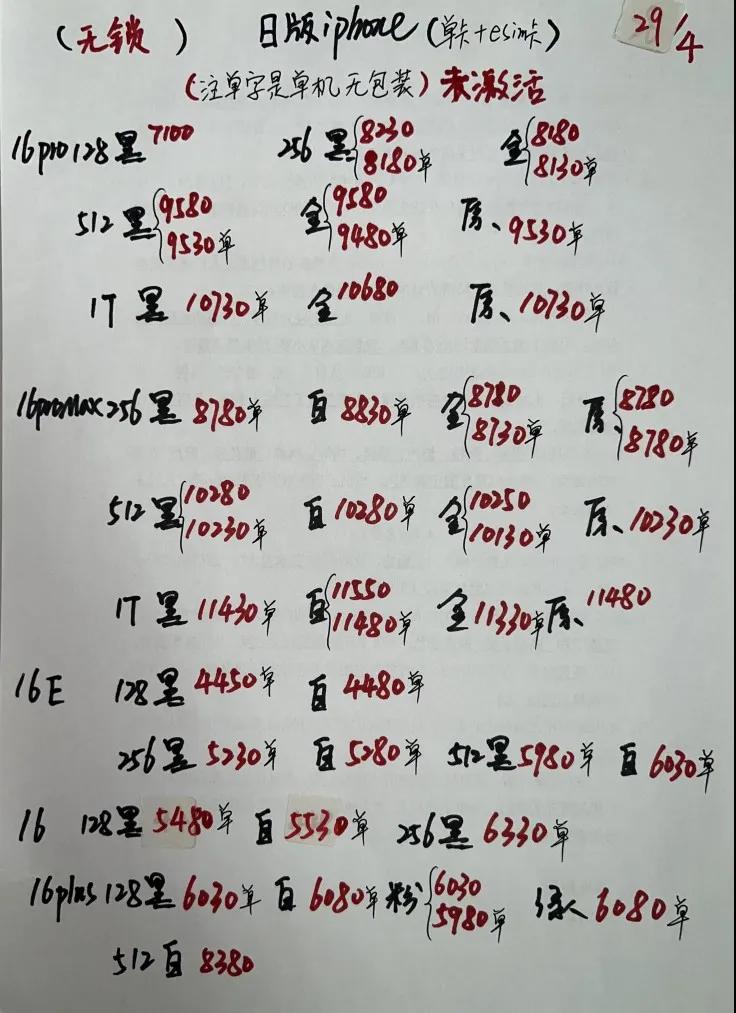 (无锁) 日版iphone(单卡+esim卡) 29/4
(注单字是单机无包装)未激活
16pro128黑7100 256黑{8230 金{8180
8180单 8130单
512黑{9580 金{9580 原、9530单
9530单 9480单
1T 黑 10730单 金10680 原、10730单
16proMax256黑 8780单 白 8830单 金{8780 原、{8780
8730单 8780单
512黑{10280 白 10280单 金{10250 原、10230单
10230单 10130单
1T 黑 11430单 白{11550 金 11330单 原、11480
11480单
16E 128黑 4450单 白 4480单
256黑 5230单 白 5280单 512黑 5980单 白 6030单
16 128黑 5480单 白 5530单 256黑 6330单
16plus128黑 6030单 白 6080单 粉{6030 绿 6080单
5980单
512白 8380